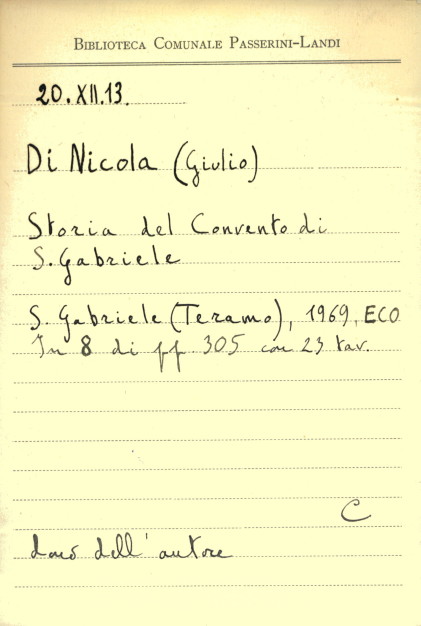 BIBLIOTECA COMUNALE PASSERINI-LANDI
20.XII.13.
Di Nicola (Giulio)
Storia del Convento di
S. Gabriele
S. Gabriele (Teramo), 1969, ECO
In 8 di pp. 305 con 23 tav.
C
dono dell'autore